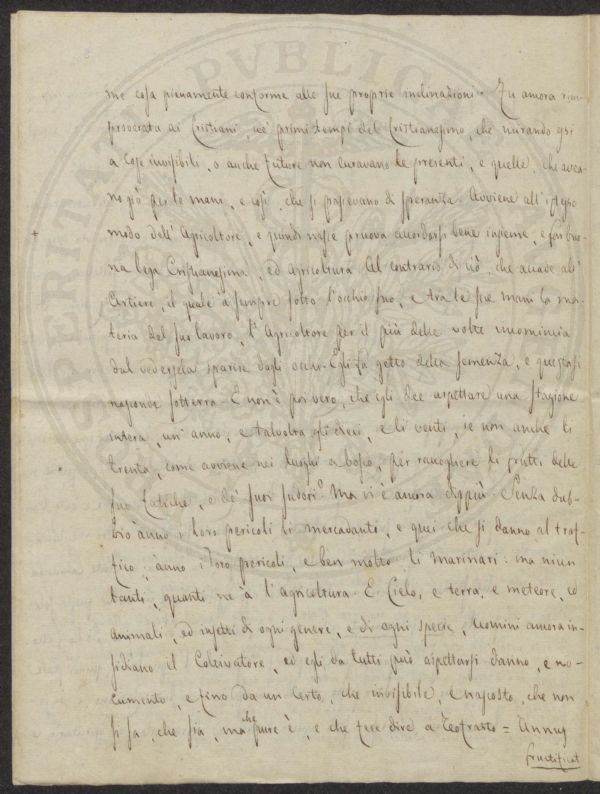 me cosa pienamente conforme alle sue proprie inclinazioni. Fu ancora rim-
proverata ai Cristiani, ne' primi tempi del Cristianesimo, che mirando essi
a cose invisibili, o anche future non curavano le presenti, e quelle, che avea-
no già per le mani, e così, che si pascevano di speranza. Avviene all'istesso
modo dell'Agricoltore, e quindi nasce pruova accordarsi bene insieme, e far buo-
na lega Cristianesimo, ed agricoltura. Al contrario di ciò, che accade all'
Artiere, il quale à sempre sotto l'occhio suo, e tra le sue mani la ma-
teria del suo lavoro, l'Agricoltore per il più delle volte incomincia
dal vedersela sparire dagli occhi. Egli fa getto della semenza, e questa si
nasconde sotterra. E non è poi vero, che egli dee aspettare una stagione
intera, un'anno, e talvolta gli dieci, e li venti, se non anche li
trenta, come avviene nei luoghi a bosco, per raccogliere li frutti delle
sue fatiche, e de' suoi sudori? Ma vi è ancora dippiù. Senza dub-
bio ànno i loro pericoli li mercadanti, e quei che si danno al traf-
fico; ànno i loro pericoli, e ben molto li marinari: ma niun
tanti, quanti ne à l'agricoltura. E Cielo, e terra, e meteore, ed
animali, ed insetti di ogni genere, e di ogni specie, uomini ancora in-
sidiano il Coltivatore, ed egli da tutti può aspettarsi danno, e no-
cumento, e fino da un certo, che invisibile, e nascosto, che non
si sa, che sia, ma che pure è, e che fece dire a Teofrasto = Annus
fructificat